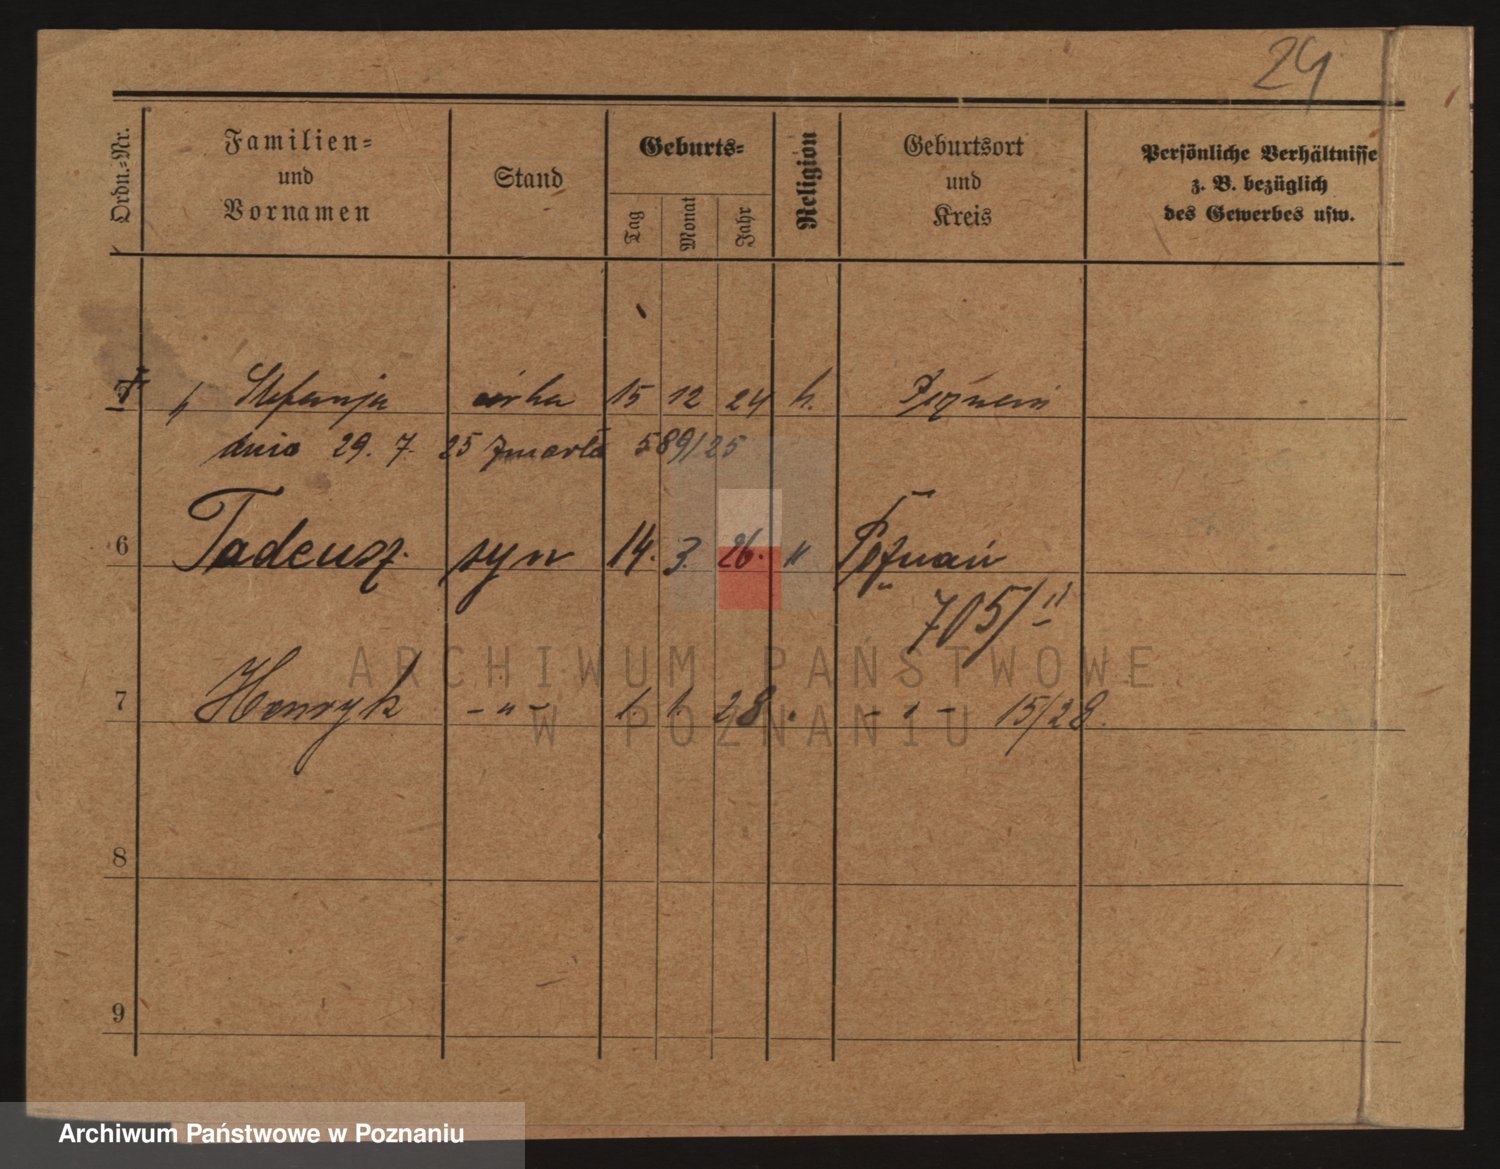 24
Ordn.=Nr.
Familien=
und
Vornamen
Stand
Geburts=
Tag
Monat
Jahr
Religion
Geburtsort
und
Kreis
Persönliche Verhältnisse
z. B. bezüglich
des Gewerbes usw.
" Stefanja córka 15 12 24 k. Poznań
dnia 29. 7. 25 zmarła 589/25
6 Tadeusz syn 14. 3. 26. " Poznań
705/II
7 Henryk - " - 1. 1. 28 " - " - 15/28.
8
9
ARCHIWUM PAŃSTWOWE
W POZNANIU
Archiwum Państwowe w Poznaniu